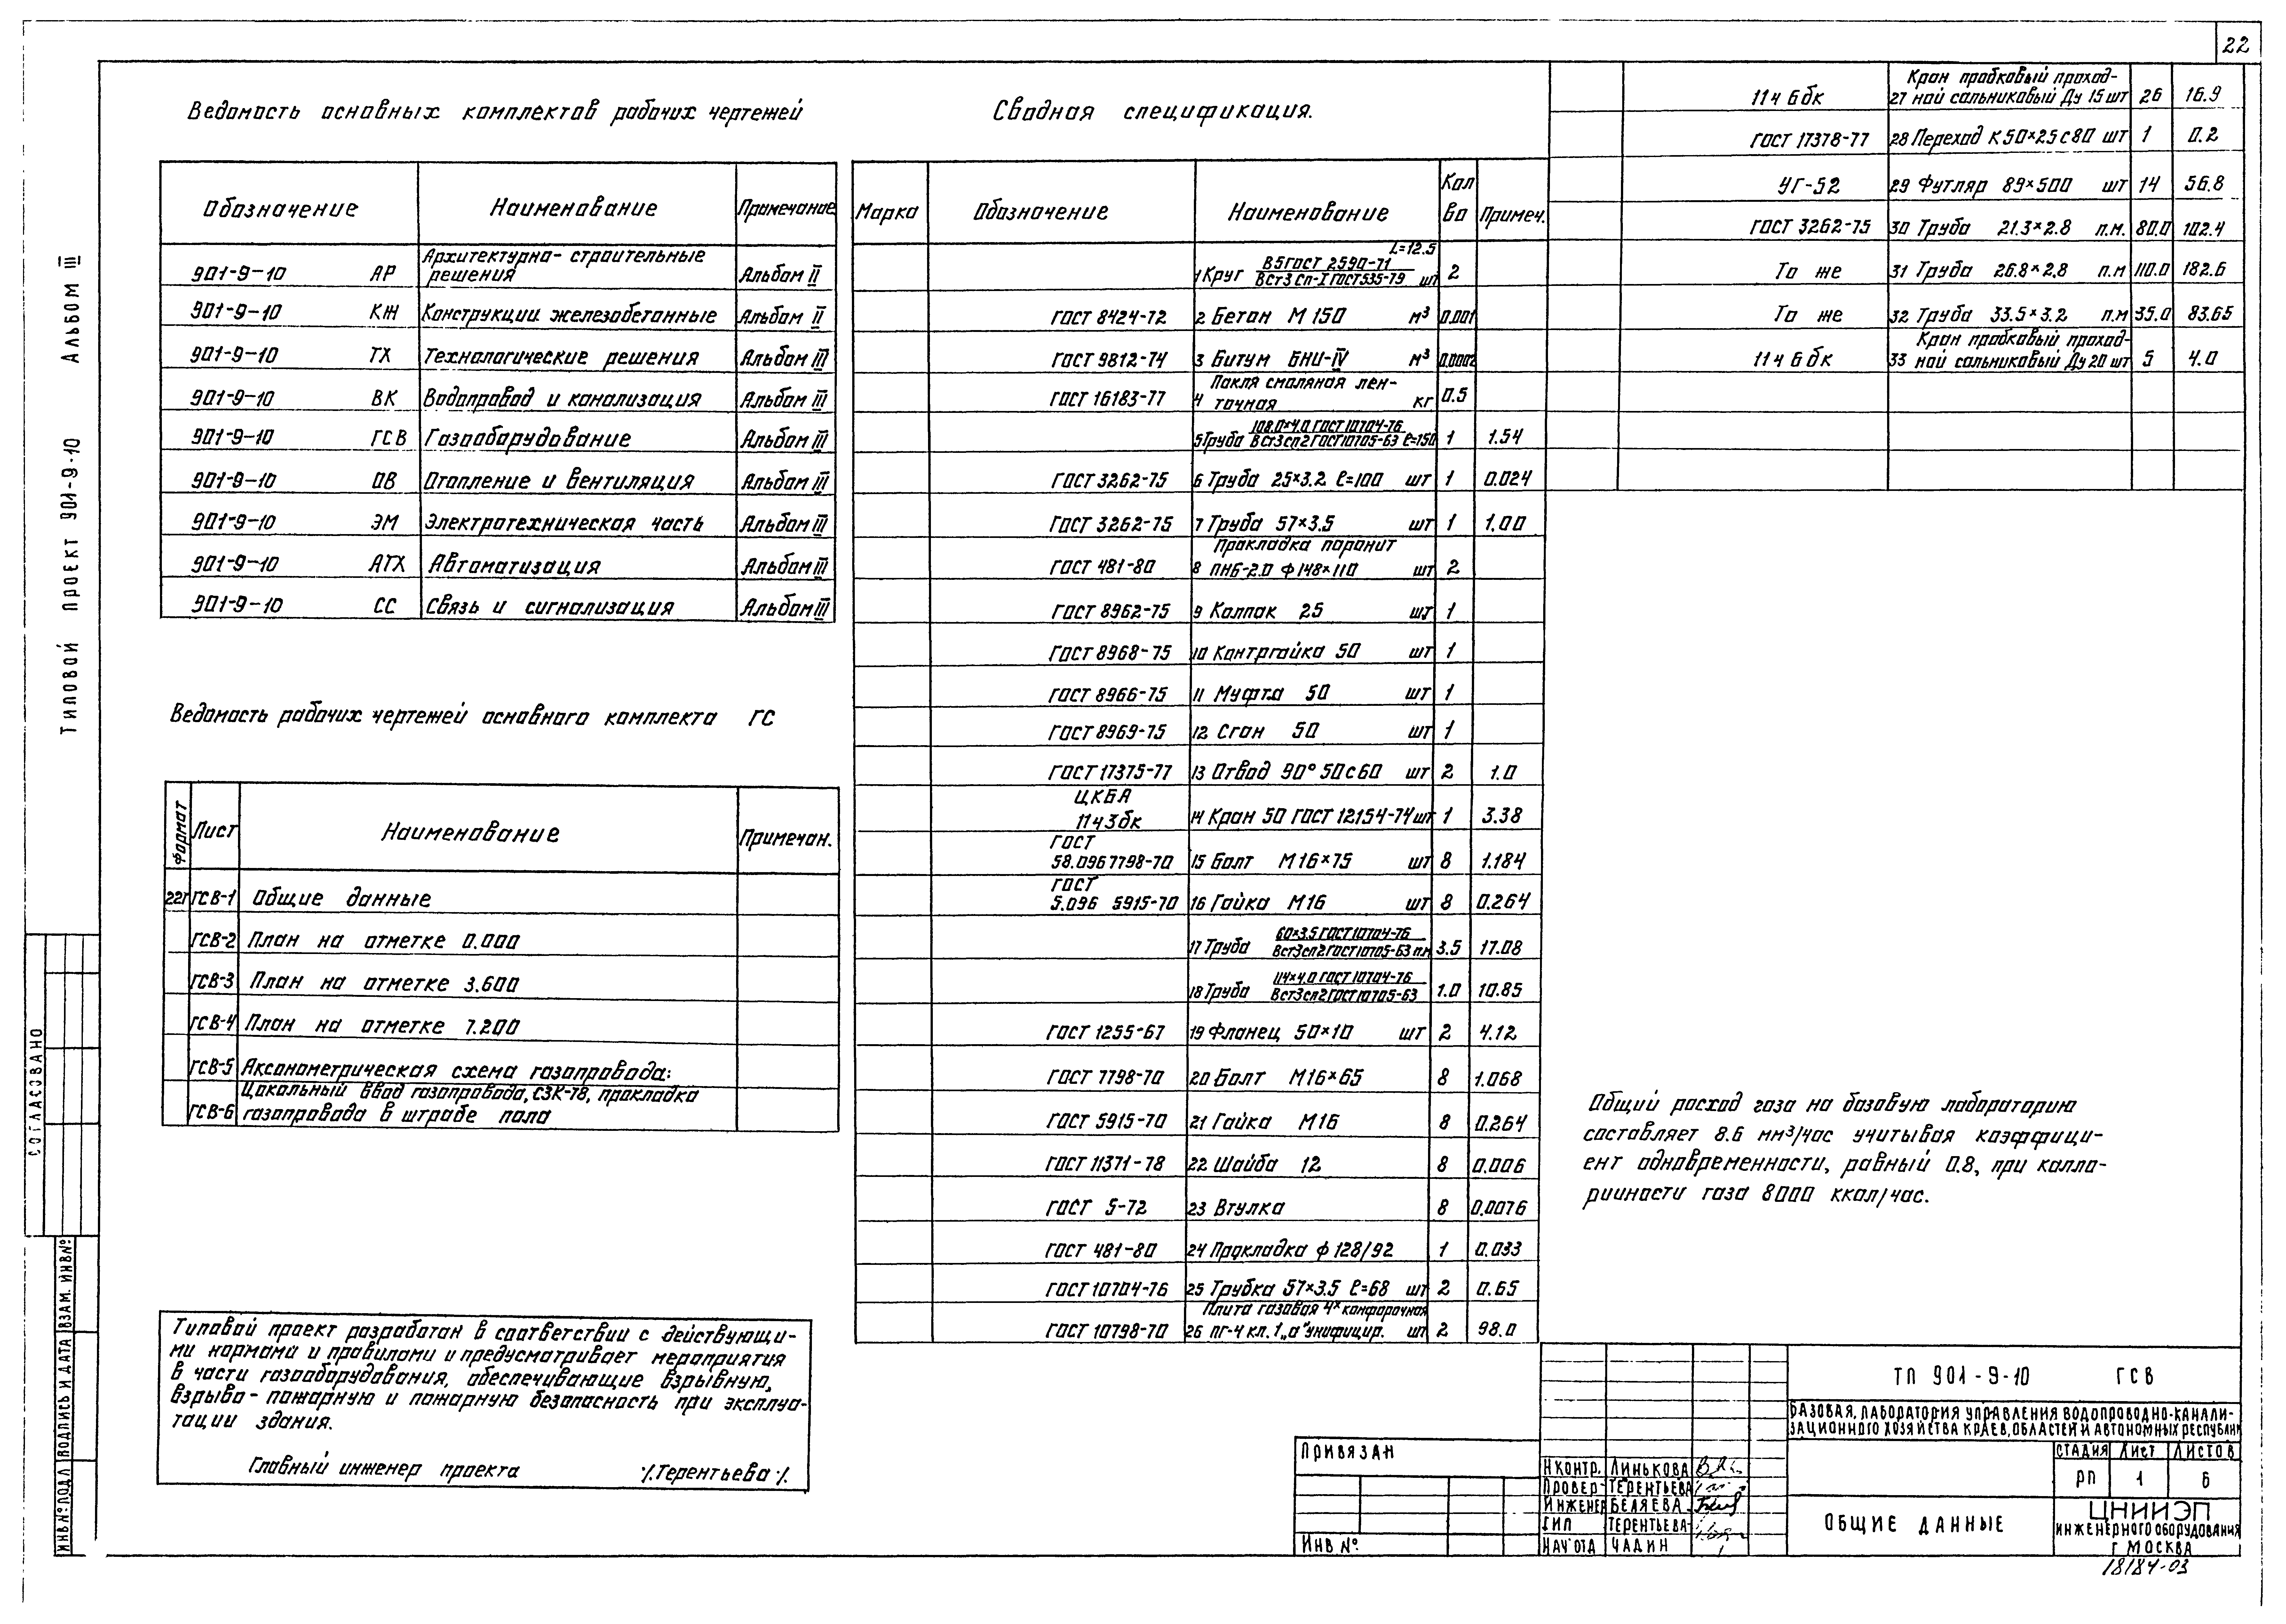 22
Ведомость основных комплектов рабочих чертежей
Обозначение Наименование Примечание
901-9-10 АР Архитектурно-строительные решения Альбом II
901-9-10 КЖ Конструкции железобетонные Альбом II
901-9-10 ТХ Технологические решения Альбом III
901-9-10 ВК Водопровод и канализация Альбом III
901-9-10 ГСВ Газооборудование Альбом III
901-9-10 ОВ Отопление и вентиляция Альбом III
901-9-10 ЭМ Электротехническая часть Альбом III
901-9-10 АТХ Автоматизация Альбом III
901-9-10 СС Связь и сигнализация Альбом III
Ведомость рабочих чертежей основного комплекта ГС
Формат Лист Наименование Примечан.
22г ГСВ-1 Общие данные
ГСВ-2 План на отметке 0.000
ГСВ-3 План на отметке 3.600
ГСВ-4 План на отметке 7.200
ГСВ-5 Аксонометрическая схема газопровода:
Цокольный ввод газопровода, СЗК-78, прокладка
ГСВ-6 газопровода в штрабе пола
Типовой проект разработан в соответствии с действующи-
ми нормами и правилами и предусматривает мероприятия
в части газооборудования, обеспечивающие взрывную,
взрыво-пожарную и пожарную безопасность при эксплуа-
тации здания.
Главный инженер проекта ·/.Терентьева·/.
Сводная спецификация.
Марка Обозначение Наименование Кол во Примеч.
L=12.5
1 Круг В5 ГОСТ 2590-71 / ВСт3 сп-I ГОСТ 535-79 шт 2
ГОСТ 8424-72 2 Бетон М 150 м³ 0.001
ГОСТ 9812-74 3 Битум БНИ-IV м³ 0.0002
ГОСТ 16183-77 4 Пакля смоляная лен-
точная кг 0.5
5 Труба 108.0×4.0 ГОСТ 10704-76 / ВСт3сп2 ГОСТ 10705-63 ℓ=150 1 1.54
ГОСТ 3262-75 6 Труба 25×3.2 ℓ=100 шт 1 0.024
ГОСТ 3262-75 7 Труба 57×3.5 шт 1 1.00
Прокладка паронит
ГОСТ 481-80 8 ПНБ-2.0 ф148×110 шт 2
ГОСТ 8962-75 9 Колпак 25 шт 1
ГОСТ 8968-75 10 Контргайка 50 шт 1
ГОСТ 8966-75 11 Муфта 50 шт 1
ГОСТ 8969-75 12 Сгон 50 шт 1
ГОСТ 17375-77 13 Отвод 90° 50с60 шт 2 1.0
ЦКБА
11ч3бк 14 Кран 50 ГОСТ 12154-74 шт 1 3.38
ГОСТ
58.096 7798-70 15 Болт М16×75 шт 8 1.184
ГОСТ
5.096 5915-70 16 Гайка М16 шт 8 0.264
17 Труба 60×3.5 ГОСТ 10704-76 / ВСт3сп2 ГОСТ 10705-63 п.м 3.5 17.08
18 Труба 114×4.0 ГОСТ 10704-76 / ВСт3сп2 ГОСТ 10705-63 1.0 10.85
ГОСТ 1255-67 19 Фланец 50×10 шт 2 4.12
ГОСТ 7798-70 20 Болт М16×65 8 1.068
ГОСТ 5915-70 21 Гайка М16 8 0.264
ГОСТ 11371-78 22 Шайба 12 8 0.006
ГОСТ 5-72 23 Втулка 8 0.0076
ГОСТ 481-80 24 Прокладка ф 128/92 1 0.033
ГОСТ 10704-76 25 Трубка 57×3.5 ℓ=68 шт 2 0.65
Плита газовая 4х конфорочная
ГОСТ 10798-70 26 ПГ-4 кл.1 „а" унифицир. шт 2 98.0
Кран пробковый проход-
11ч6бк 27 ной сальниковый Ду 15 шт 26 16.9
ГОСТ 17378-77 28 Переход К 50×25с80 шт 1 0.2
УГ-52 29 Футляр 89×500 шт 14 56.8
ГОСТ 3262-75 30 Труба 21.3×2.8 п.м. 80.0 102.4
То же 31 Труба 26.8×2.8 п.м 110.0 182.6
То же 32 Труба 33.5×3.2 п.м 35.0 83.65
Кран пробковый проход-
11ч6бк 33 ной сальниковый Ду 20 шт 5 4.0
Общий расход газа на базовую лабораторию
составляет 8.6 нм³/час учитывая коэффици-
ент одновременности, равный 0.8, при калло-
рийности газа 8000 ккал/час.
ТП 901-9-10 ГСВ
БАЗОВАЯ ЛАБОРАТОРИЯ УПРАВЛЕНИЯ ВОДОПРОВОДНО-КАНАЛИ-
ЗАЦИОННОГО ХОЗЯЙСТВА КРАЕВ, ОБЛАСТЕЙ И АВТОНОМНЫХ РЕСПУБЛИК
СТАДИЯ ЛИСТ ЛИСТОВ
РП 1 6
ОБЩИЕ ДАННЫЕ
ЦНИИЭП
ИНЖЕНЕРНОГО ОБОРУДОВАНИЯ
Г МОСКВА
Н КОНТР. ЛИНЬКОВА
ПРОВЕР- ТЕРЕНТЬЕВА
ИНЖЕНЕР БЕЛЯЕВА
ГИП ТЕРЕНТЬЕВА
НАЧ ОТД ЧАДИН
ПРИВЯЗАН
ИНВ №
18184-03
ТИПОВОЙ ПРОЕКТ 901-9-10 АЛЬБОМ III
СОГЛАСОВАНО
ИНВ № ПОДЛ ПОДПИСЬ И ДАТА ВЗАМ. ИНВ №